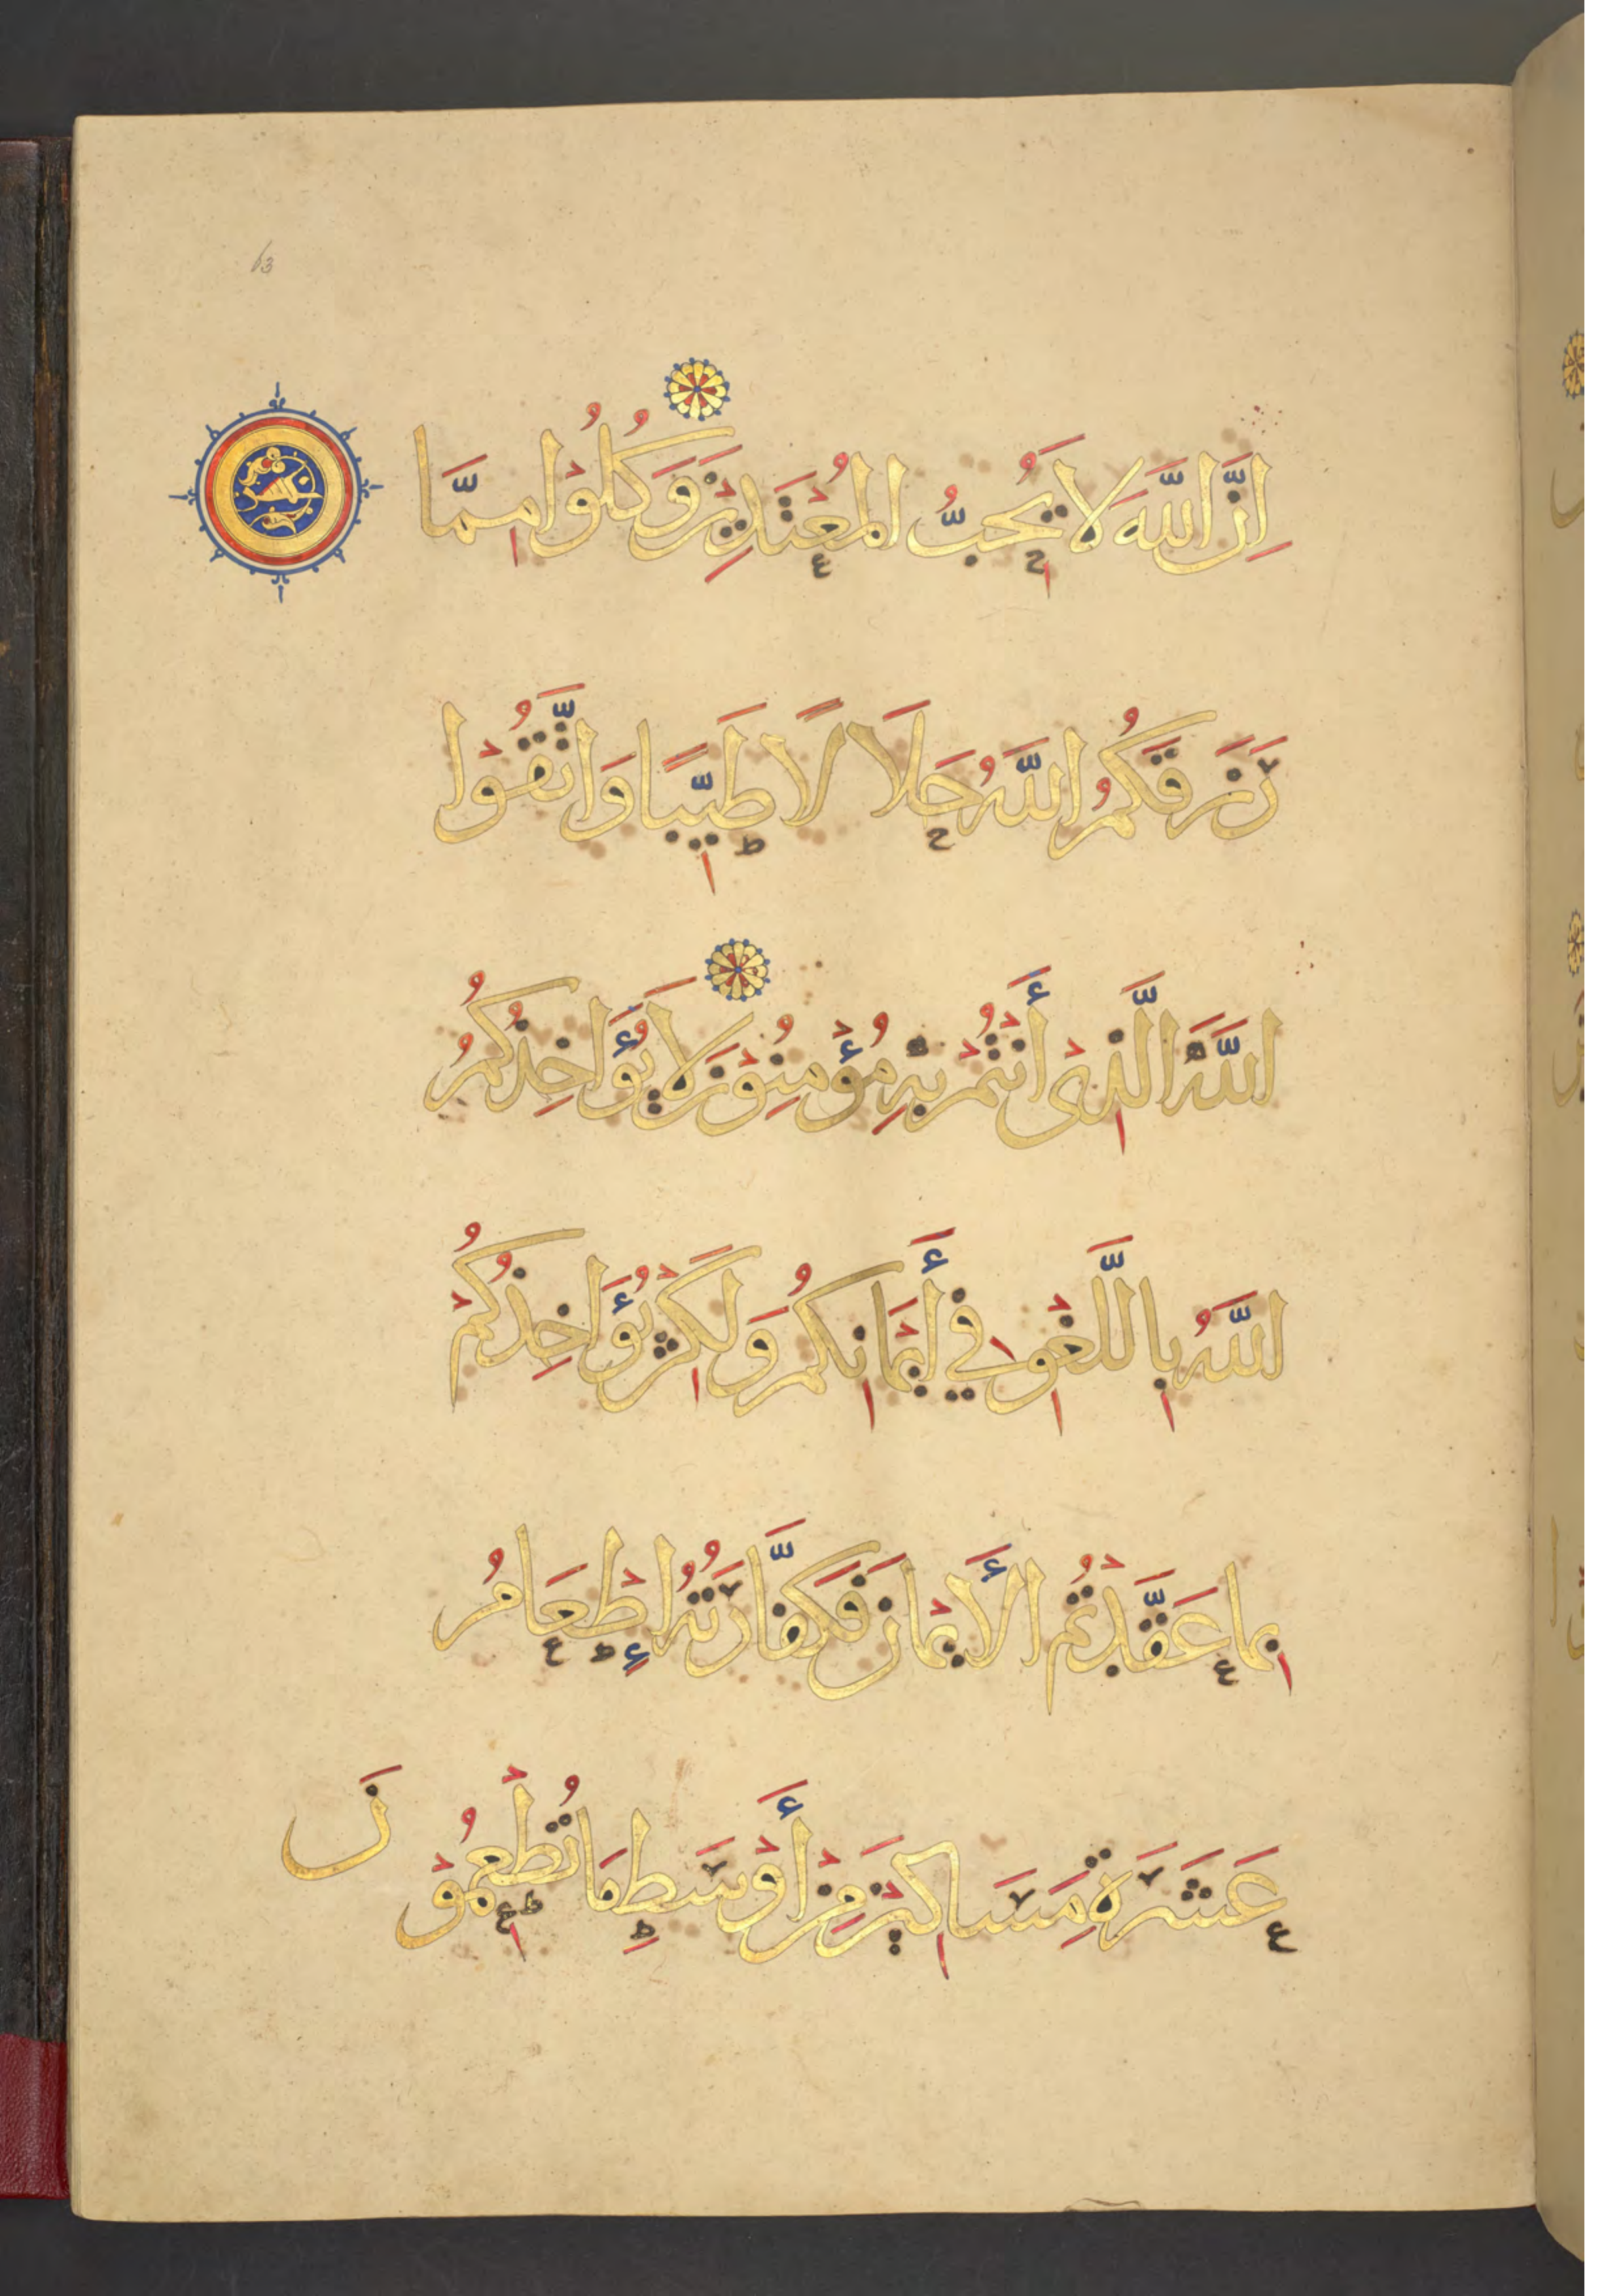 63
إِنَّ اللَّهَ لَا يُحِبُّ الْمُعْتَدِينَ وَكُلُوْا مِمَّا
رَزَقَكُمُ اللَّهُ حَلَالًا طَيِّبًا وَاتَّقُوْا
اللَّهَ الَّذِىْ أَنْتُمْ بِهِ مُؤْمِنُوْنَ لَا يُؤَاخِذُكُمُ
اللَّهُ بِاللَّغْوِ فِي أَيْمَانِكُمْ وَلَكِنْ يُؤَاخِذُكُمْ
بِمَا عَقَّدْتُمُ الْأَيْمَانَ فَكَفَّارَتُهُ إِطْعَامُ
عَشَرَةِ مَسَاكِيْنَ مِنْ أَوْسَطِ مَا تُطْعِمُوْنَ